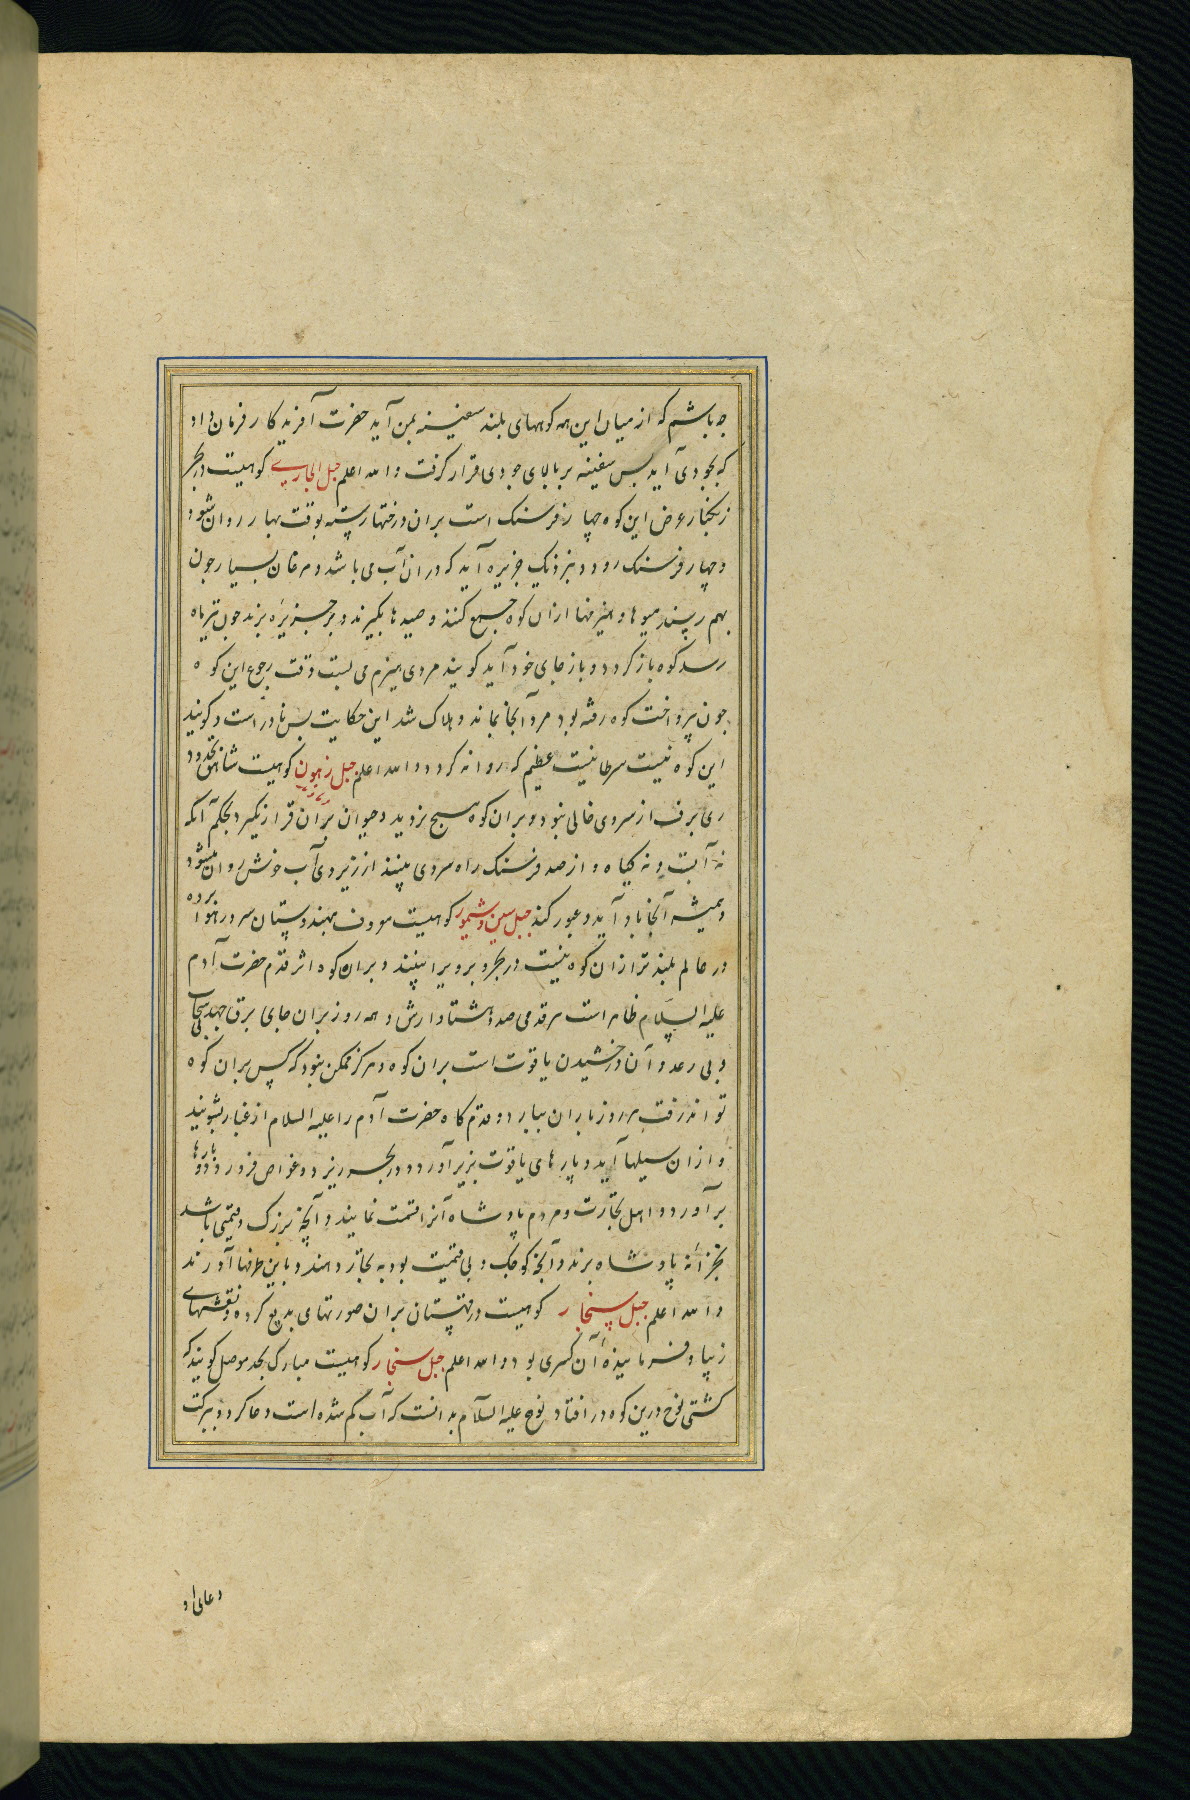 چه باشم که از میان این همه کوههای بلند سفینه بمن آید حضرت آفریدکار فرمان داد
که بجودی آید پس سفینه بر بالای جودی قرار کرفت والله اعلم جبل الجاری کوهیست در بحر
زنجبار عرض این کوه چهار فرسنک است بران درختها رسته بوقت بهار روان شود
و چهار فرسنک رود و بنزدیک جزیره آید که در ان آب می باشد و مرغان بسیار چون
بهم رسند میوها و هیزمها ازان کوه جمع کنند و صیدها بکیرند و بر جزیره برند چون تیر ماه
رسد کوه باز کردد و باز جای خود آید کویند مردی هیزم می بست وقت رجوع این کوه
چون پرداخت کوه رفته بود مرد آنجا بماند و هلاک شد این حکایت بس نادر است و کویند
این کوه نیست سرطانیست عظیم که روانه کردد والله اعلم جبل زهون کوهیست شاهق بحدود
ری برف از سر وی خالی نبود و بران کوه هیچ نروید و حیوان بران قرار نکیرد بحکم آنکه
نه آبست و نه کیاه و از صد فرسنک راه سر وی بینند از زیر وی آب خوش روان میشود
و همیشه آنجا باد آید و عبور کند جبل سین و شمور کوهیست معروف بهندوستان سر در هوا برده
در عالم بلند تر ازان کوه نیست در بحر و بر ویرا بینند و بران کوه اثر قدم حضرت آدم
علیه السلام ظاهر است هر قدمی صد و هشتاد ارش و همه روز بران جای برق جهد بی سحاب
و بی رعد و آن درخشیدن یاقوت است بران کوه و هرکز ممکن نبود که کس بران کوه
تواند رفت هر روز باران ببارد و قدم کاه حضرت آدم را علیه السلام از غبار بشویند
و ازان سیلها آید و پارهای یاقوت بزیر آورد و در بحر ریزد و غواص فرو رود و پارها
بر آورد و اهل تجارت و مردم پادشاه آنرا قسمت نمایند و آنچه بزرک و قیمتی باشد
بخزانه پادشاه برند و آنچه کوچک و بی قیمت بود به تجار دهند و باین طرفها آورند
والله اعلم جبل سنجار کوهیست در قهستان بران صورتهای بدیع کرده و نقشهای
زیبا و فرماینده آن کسری بود والله اعلم جبل سنجار کوهیست مبارک بحد موصل کویند که
کشتی نوح درین کوه در افتاد نوح علیه السلام بدانست که آب کم شده است دعا کرد و ببرکت
دعای او